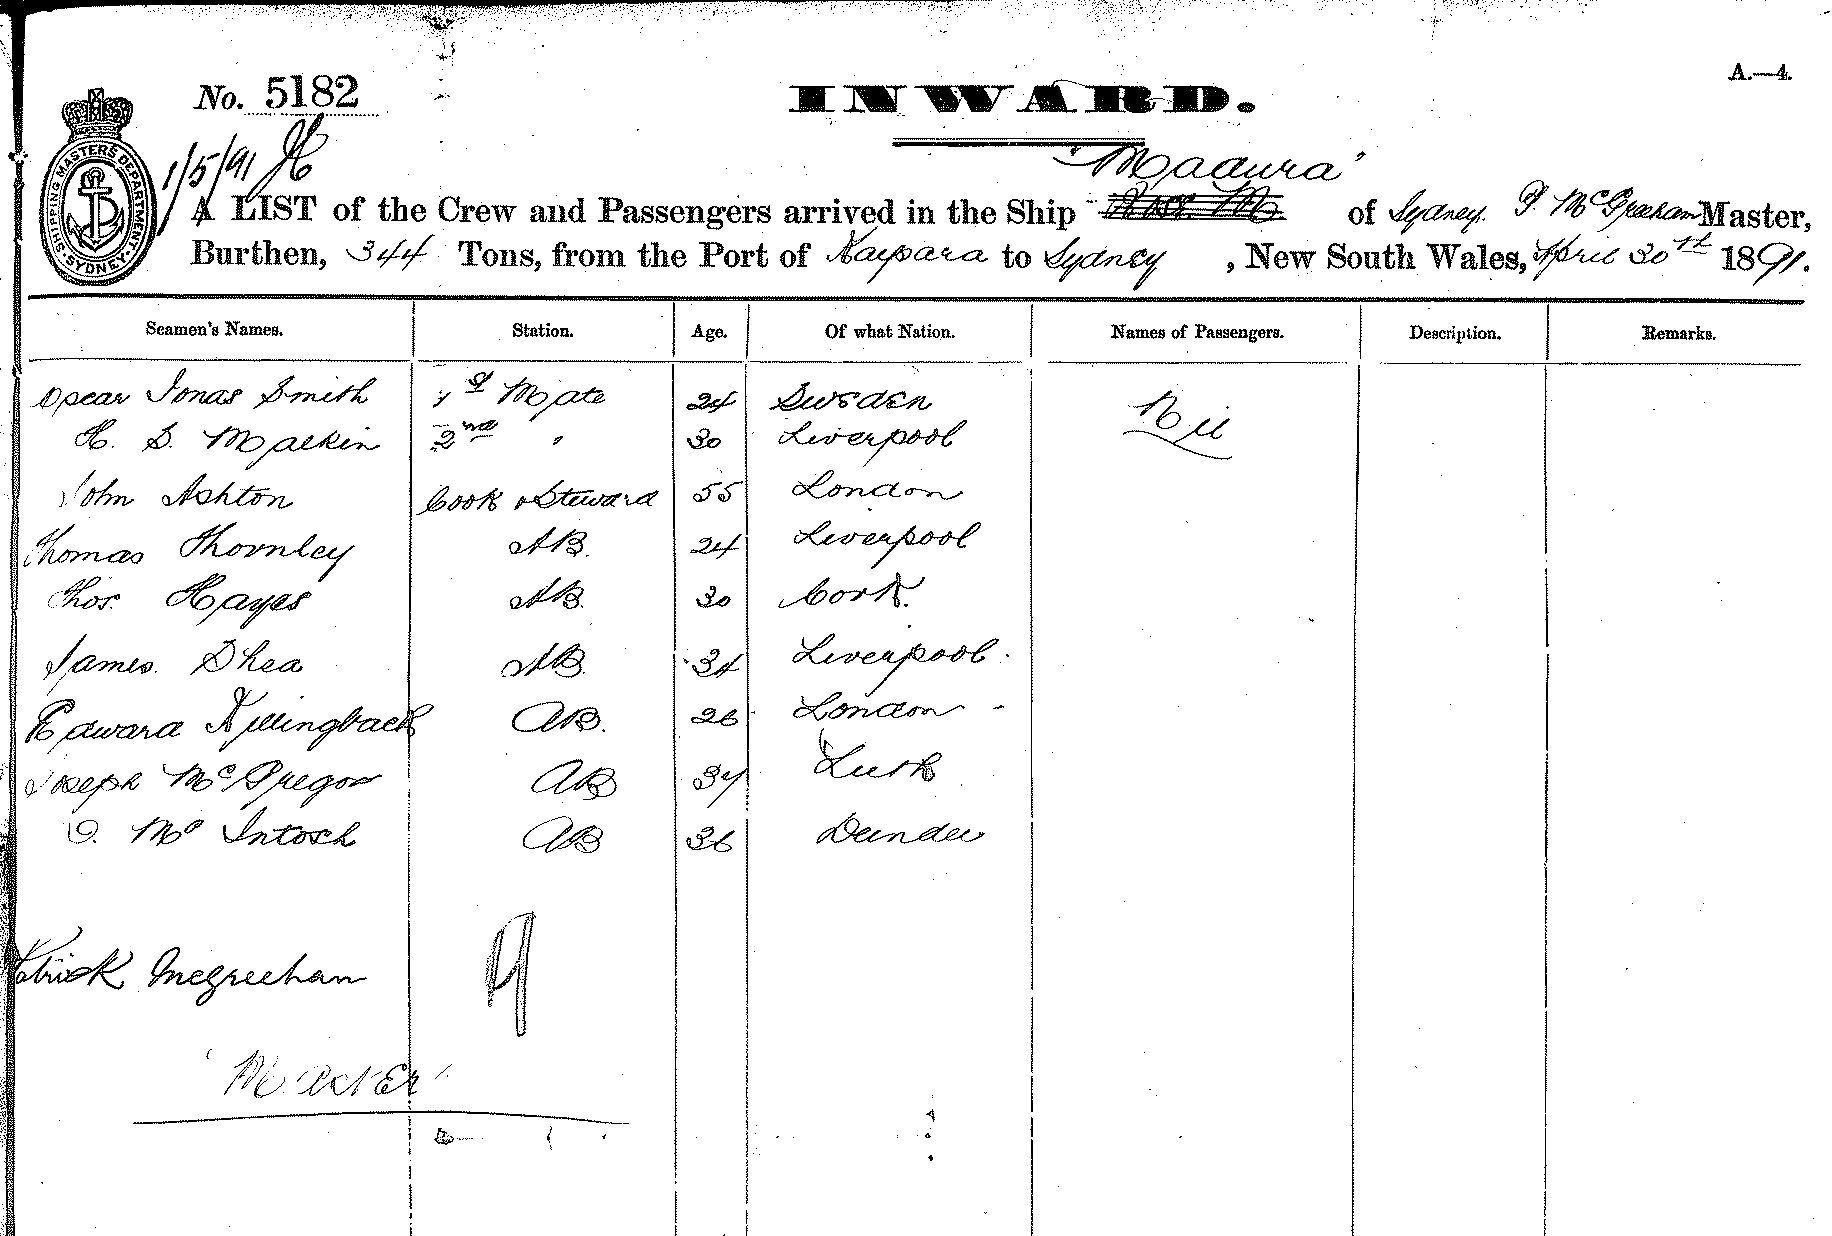 A.—4.
No. 5182
INWARD.
SHIPPING MASTERS DEPARTMENT SYDNEY
1/5/91
"Madura"
A LIST of the Crew and Passengers arrived in the Ship of Sydney. P. McGreehan Master,
Burthen, 344 Tons, from the Port of Kaipara to Sydney, New South Wales, April 30th 1891.
Seamen's Names. Station. Age. Of what Nation. Names of Passengers. Description. Remarks.
Oscar Jonas Smith 1st Mate 24 Sweden Nil
H. S. Malkin 2nd " 30 Liverpool
John Ashton Cook & Steward 55 London
Thomas Thornley AB. 24 Liverpool
Thos. Hayes AB. 30 Cork.
James Shea AB. 34 Liverpool.
Edward Killingback AB. 26 London
Joseph McGregor AB 34
D. McIntosh AB 36 Dundee
Patrick McGreehan 9
"Master"